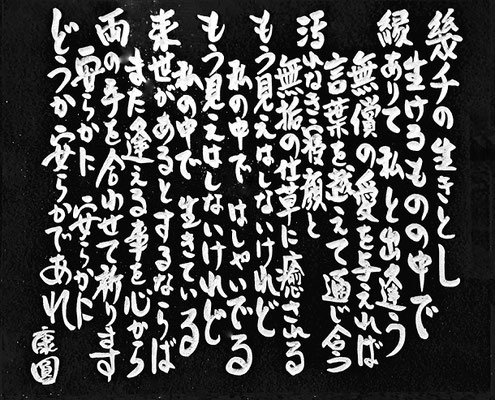 幾千の生きとし
生けるものの中で
縁ありて 私と出逢う
無償の愛を与えれば
言葉を越えて通じ合う
汚れなき寝顔と
無垢の仕草に癒される
もう見えはしないけれど
私の中で はしゃいでる
もう見えはしないけれど
私の中で 生きている
来世があるとするならば
また逢える事を心から
両の手を合わせて祈ります
安らかに 安らかに
どうか安らかであれ
康圓